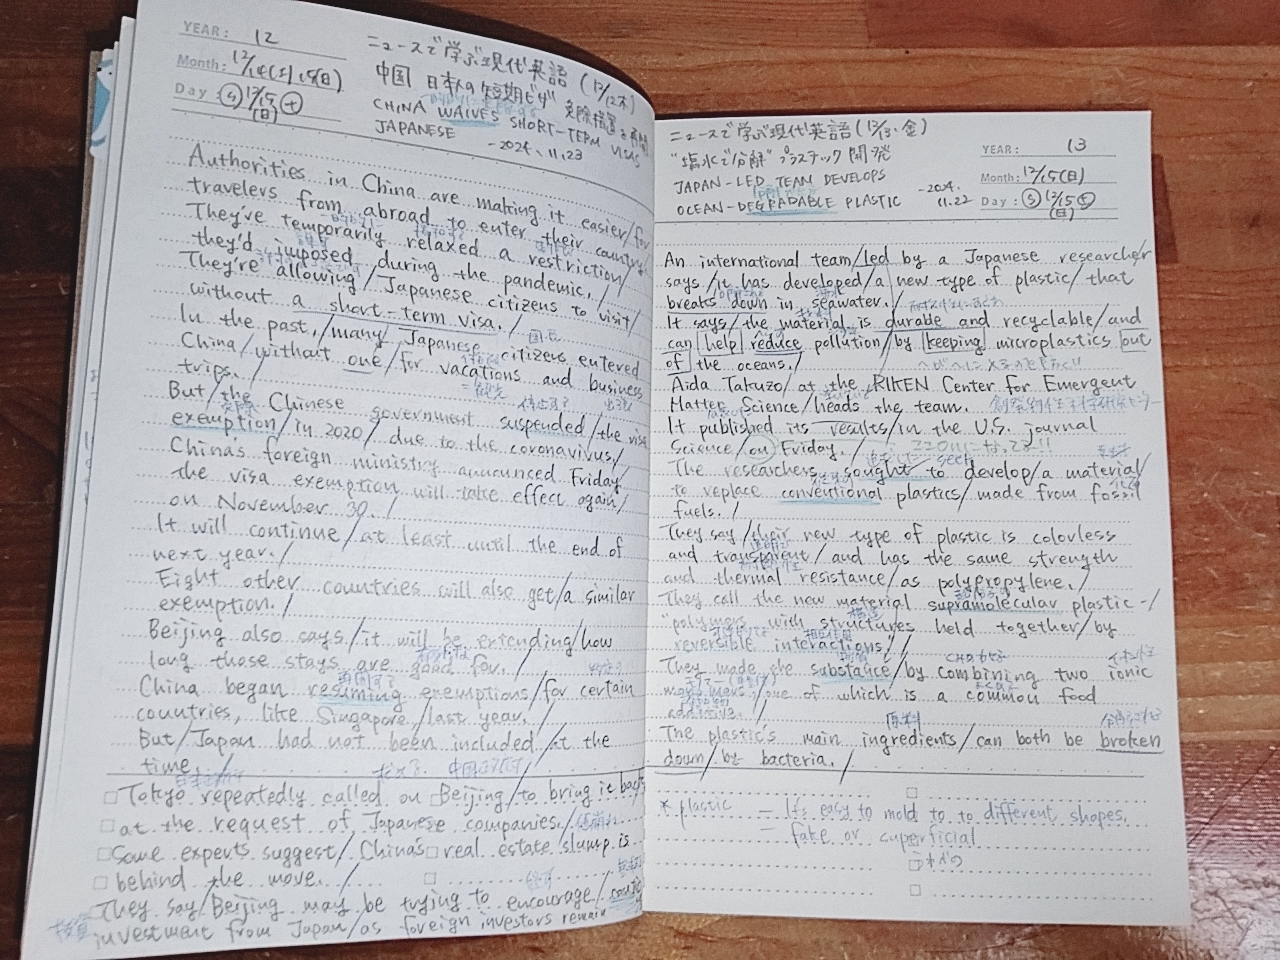 YEAR: 12
Month: 12/14(土)15(日)
Day: 12/15
(日)
ニュースで学ぶ現代英語 (12/12木)
中国 日本人の短期ビザ 免除措置を再開
CHINA WAIVES SHORT-TERM VISAS
JAPANESE
-2024.11.23
Authorities in China are making it easier/for
travelers from abroad to enter their country.
They've temporarily relaxed a restriction/
they'd imposed during the pandemic./
They're allowing/Japanese citizens to visit/
without a short-term visa./
In the past,/many Japanese citizens entered
China/without one/for vacations and business
trips./
But/the Chinese government suspended/the visa
exemption/in 2020/due to the coronavirus./
China's foreign ministry announced Friday/
the visa exemption will take effect again/
on November 30./
It will continue/at least until the end of
next year./
Eight other countries will also get/a similar
exemption./
Beijing also says/it will be extending/how
long those stays are good for./
China began resuming exemptions/for certain
countries, like Singapore/last year./
But/Japan had not been included/at the
time./
Tokyo repeatedly called on Beijing/to bring it back/
at the request of Japanese companies./
Some experts suggest/China's real estate slump is
behind the move./
They say/Beijing may be trying to encourage/
investment from Japan/as foreign investors remain
ニュースで学ぶ現代英語 (12/13.金)
"塩水で分解" プラスチック開発
JAPAN-LED TEAM DEVELOPS
OCEAN-DEGRADABLE PLASTIC
-2024.
11.22
YEAR: 13
Month: 12/15(日)
Day: 12/15
(日)
An international team/led by a Japanese researcher
says/it has developed/a new type of plastic/that
breaks down in seawater./
It says/the material is durable and recyclable/and
can help reduce pollution/by keeping microplastics out
of the oceans./
Aida Takuzo/at the RIKEN Center for Emergent
Matter Science/heads the team.
It published its results/in the U.S. journal
Science/on Friday./
The researchers sought to develop/a material/
to replace conventional plastics/made from fossil
fuels./
They say/their new type of plastic is colorless
and transparent/and has the same strength
and thermal resistance/as polypropylene./
They call the new material supramolecular plastic-/
"polymers with structures held together/by
reversible interactions./
They made the substance/by combining two ionic
monomers,/one of which is a common food
additive./
The plastic's main ingredients/can both be broken
down/by bacteria./
* plastic — It's easy to mold to to different shapes.
= fake or cuperficial